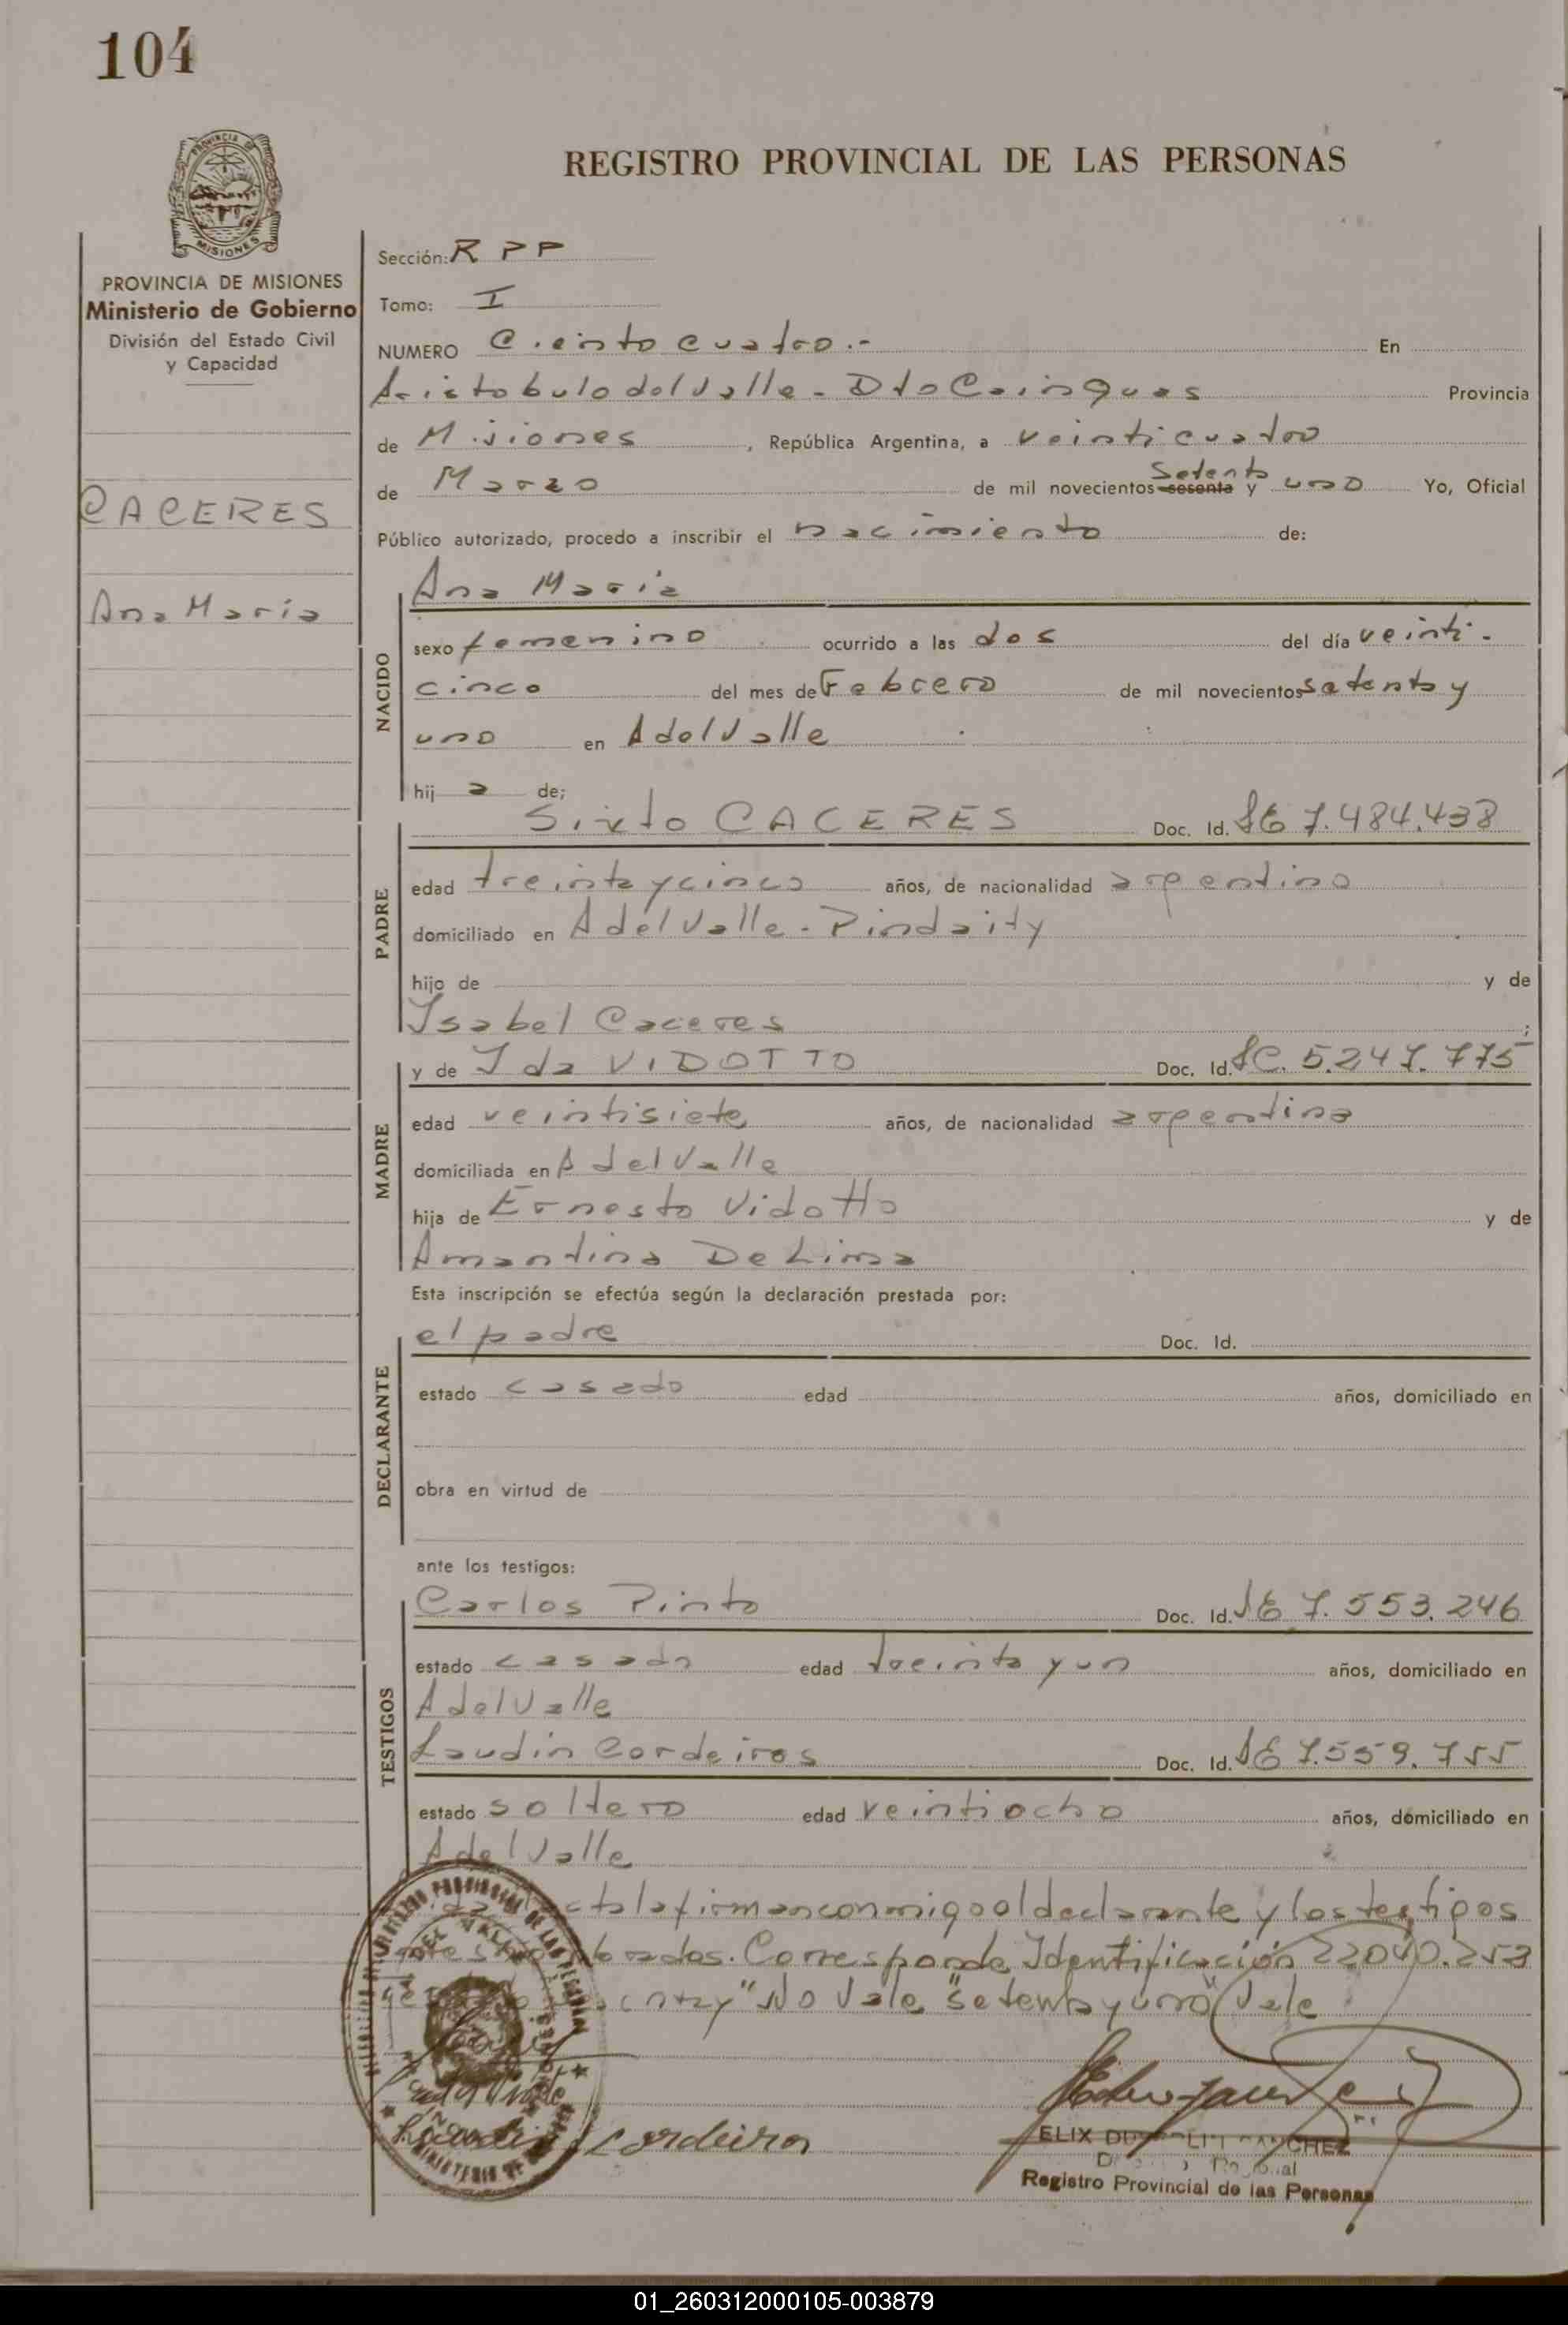 104
REGISTRO PROVINCIAL DE LAS PERSONAS
PROVINCIA DE
MISIONES
PROVINCIA DE MISIONES
Ministerio de Gobierno
División del Estado Civil
y Capacidad
CACERES
Ana Maria
Sección: R P P
Tomo: I
NUMERO Ciento cuatro.- En
Aristobulo del Valle - Dto Cainguas Provincia
de Misiones, República Argentina, a veinticuatro
de Marzo de mil novecientos sesenta Setenta y uno Yo, Oficial
Público autorizado, procedo a inscribir el nacimiento de:
NACIDO
Ana Maria
sexo femenino ocurrido a las dos del día veinti-
cinco del mes de Febrero de mil novecientos setenta y
uno en A del Valle
hij a de;
PADRE
Sixto CACERES Doc. Id. LE 7.484.438
edad treinta y cinco años, de nacionalidad argentina
domiciliado en A del Valle - Pindaity
hijo de y de
Isabel Caceres ;
MADRE
y de Ida VIDOTTO Doc. Id. LC. 5.247.775
edad veintisiete años, de nacionalidad argentina
domiciliada en A del Valle
hija de Ernesto Vidotto y de
Amantina De Lima
Esta inscripción se efectúa según la declaración prestada por:
DECLARANTE
el padre Doc. Id.
estado casado edad años, domiciliado en
obra en virtud de
ante los testigos:
TESTIGOS
Carlos Pinto Doc. Id. LE 7.553.246
estado casado edad treinta y un años, domiciliado en
A del Valle
Laudin Cordeiros Doc. Id. LE 7.559.755
estado soltero edad veintiocho años, domiciliado en
A del Valle
acta la firman conmigo el declarante y los testigos
Corresponde Identificación 22040.253
"No Vale "setenta y uno" Vale
Cordeiro
SANCHEZ
Registro Provincial de las Personas
01_260312000105-003879